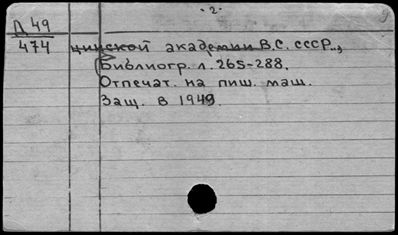 - 2 -
Д 49
474 цинской академии В.С. СССР.,
Библиогр. л. 265-288.
Отпечат. на пиш. маш.
Защ. в 1949.